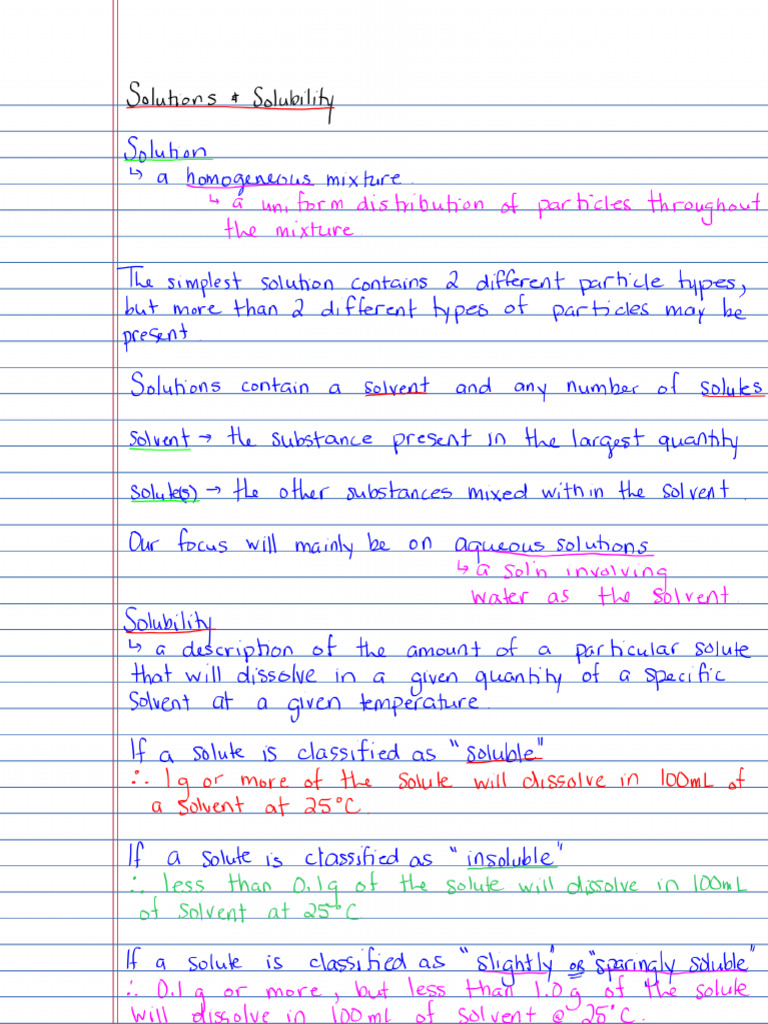 Solutions & Solubility
Solution
↳ a homogeneous mixture.
↳ a uniform distribution of particles throughout
the mixture
The simplest solution contains 2 different particle types,
but more than 2 different types of particles may be
present.
Solutions contain a solvent and any number of solutes
solvent → the substance present in the largest quantity
solute(s) → the other substances mixed within the solvent.
Our focus will mainly be on aqueous solutions
↳ a sol'n involving
water as the solvent.
Solubility
↳ a description of the amount of a particular solute
that will dissolve in a given quantity of a specific
solvent at a given temperature.
If a solute is classified as "soluble"
∴ 1g or more of the solute will dissolve in 100mL of
a solvent at 25°C.
If a solute is classified as "insoluble"
∴ less than 0.1g of the solute will dissolve in 100mL
of solvent at 25°C
If a solute is classified as "slightly" or "sparingly soluble"
∴ 0.1g or more, but less than 1.0g of the solute
will dissolve in 100mL of solvent @ 25°C.